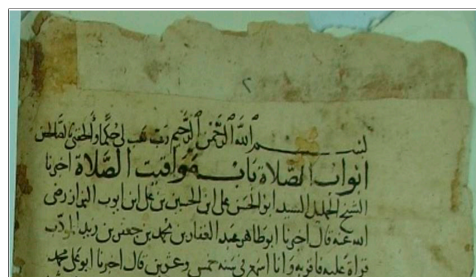 ٢
بسم الله الرحمن الرحيم رب هب لي حكما والحقني بالصالحين
ابواب الصلاة باب مواقيت الصلاة اخبرنا
الشيخ الجليل السيد ابو الحسن علي ابن الحسين بن علي ابن ايوب البزاز رضي
الله عنه قال اخبرنا ابو طاهر عبد الغفار بن محمد بن جعفر بن زيد المؤدب
قراة عليه فاقر به وانا اسمع في سنة خمس وعشرين قال اخبرنا ابو علي محمد